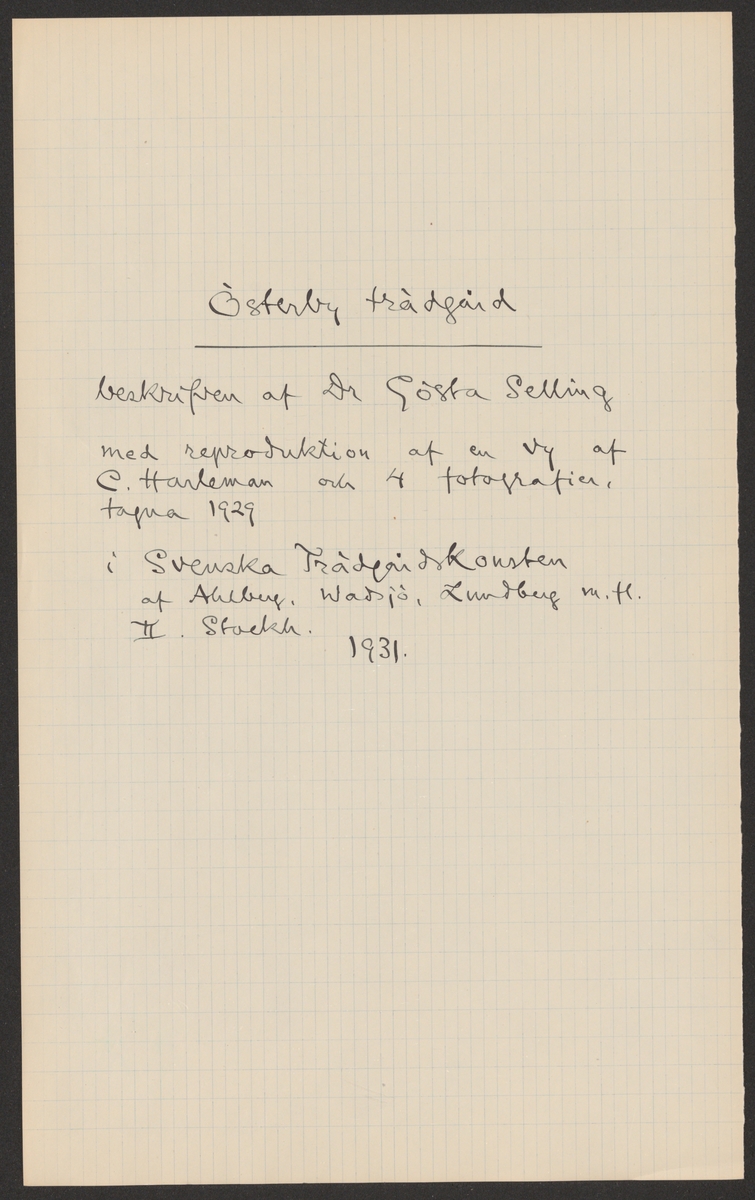 Österby trädgård
beskrifven af Dr Gösta Selling
med reproduktion af en vy af
C. Harleman och 4 fotografier,
tagna 1929
i Svenska Trädgårdskonsten
af Ahlberg, Wadsjö, Lundberg m. fl.
II. Stockh.
1931.